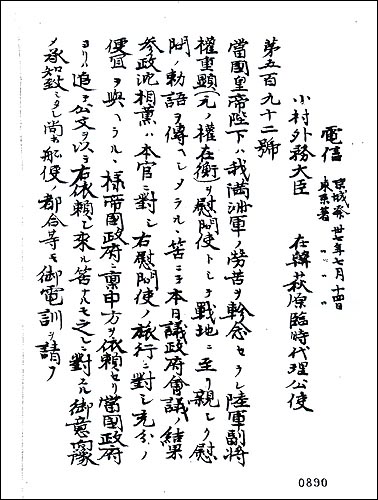 電信 京城発 卅七年七月十四日
東京着 〃 〃 〃
小村外務大臣 在韓萩原臨時代理公使
第五百九十二號
當國皇帝陛下ハ我満洲軍ノ労苦ヲ軫念セラレ陸軍副将
權重顕(元ノ權在衡)ヲ慰問使トシテ戰地ニ至リ親シク慰
問ノ勅語ヲ傳ヘシメラルヽ筈ニテ本日議政府會議ノ結果
参政沈相薫ハ本官ニ對シ右慰問使ノ旅行ニ對シ充分ノ
便宜ヲ與ヘラルヽ様帝國政府ニ稟申方ヲ依頼セリ當國政府
ヨリハ追テ公文ヲ以テ右依頼シ來ル筈ナルモ之ニ對スル御意嚮
ノ承知致シタシ尚ホ船便ノ都合等モ御電訓ヲ請フ
0890